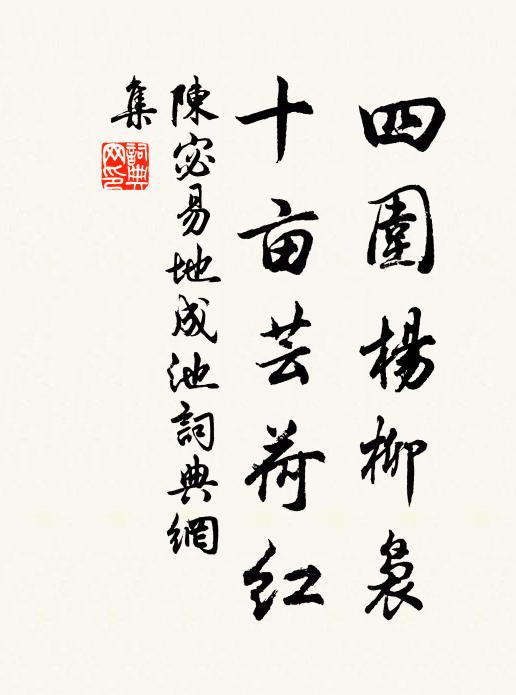 四圍楊柳裊
十亩芸荷红
陳宓易地成池詞典網
集
詞典网印